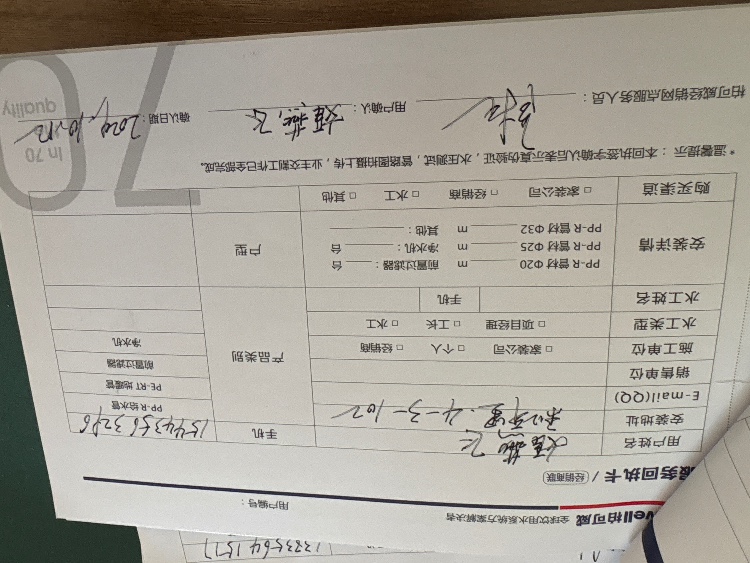 well柏可威 全球饮用水系统方案解决者
用户编号：
服务回执卡 / 经销商联
用户姓名
手机 15443563296
安装地址 4-3-102
E-mail(QQ)
销售单位
施工单位 □ 家装公司 □ 个人 □ 经销商
水工类型 □ 项目经理 □ 工长 □ 水工
水工姓名 手机
产品类别
PP-R 给水管
PE-RT 地暖管
前置过滤器
净水机
安装详情
PP-R 管材 Φ20 m 前置过滤器： 台
PP-R 管材 Φ25 m 净水机： 台
PP-R 管材 Φ32 m 其他：
户型
购买渠道 □ 家装公司 □ 经销商 □ 水工 □ 其他
*温馨提示：本回执签字确认后表示真伪验证，水压测试，管路图拍摄上传，业主交割工作已全部完成。
柏可威经销网点服务人员：
用户确认：
确认日期：2024.10.12
70
In 70
quality
13335641577